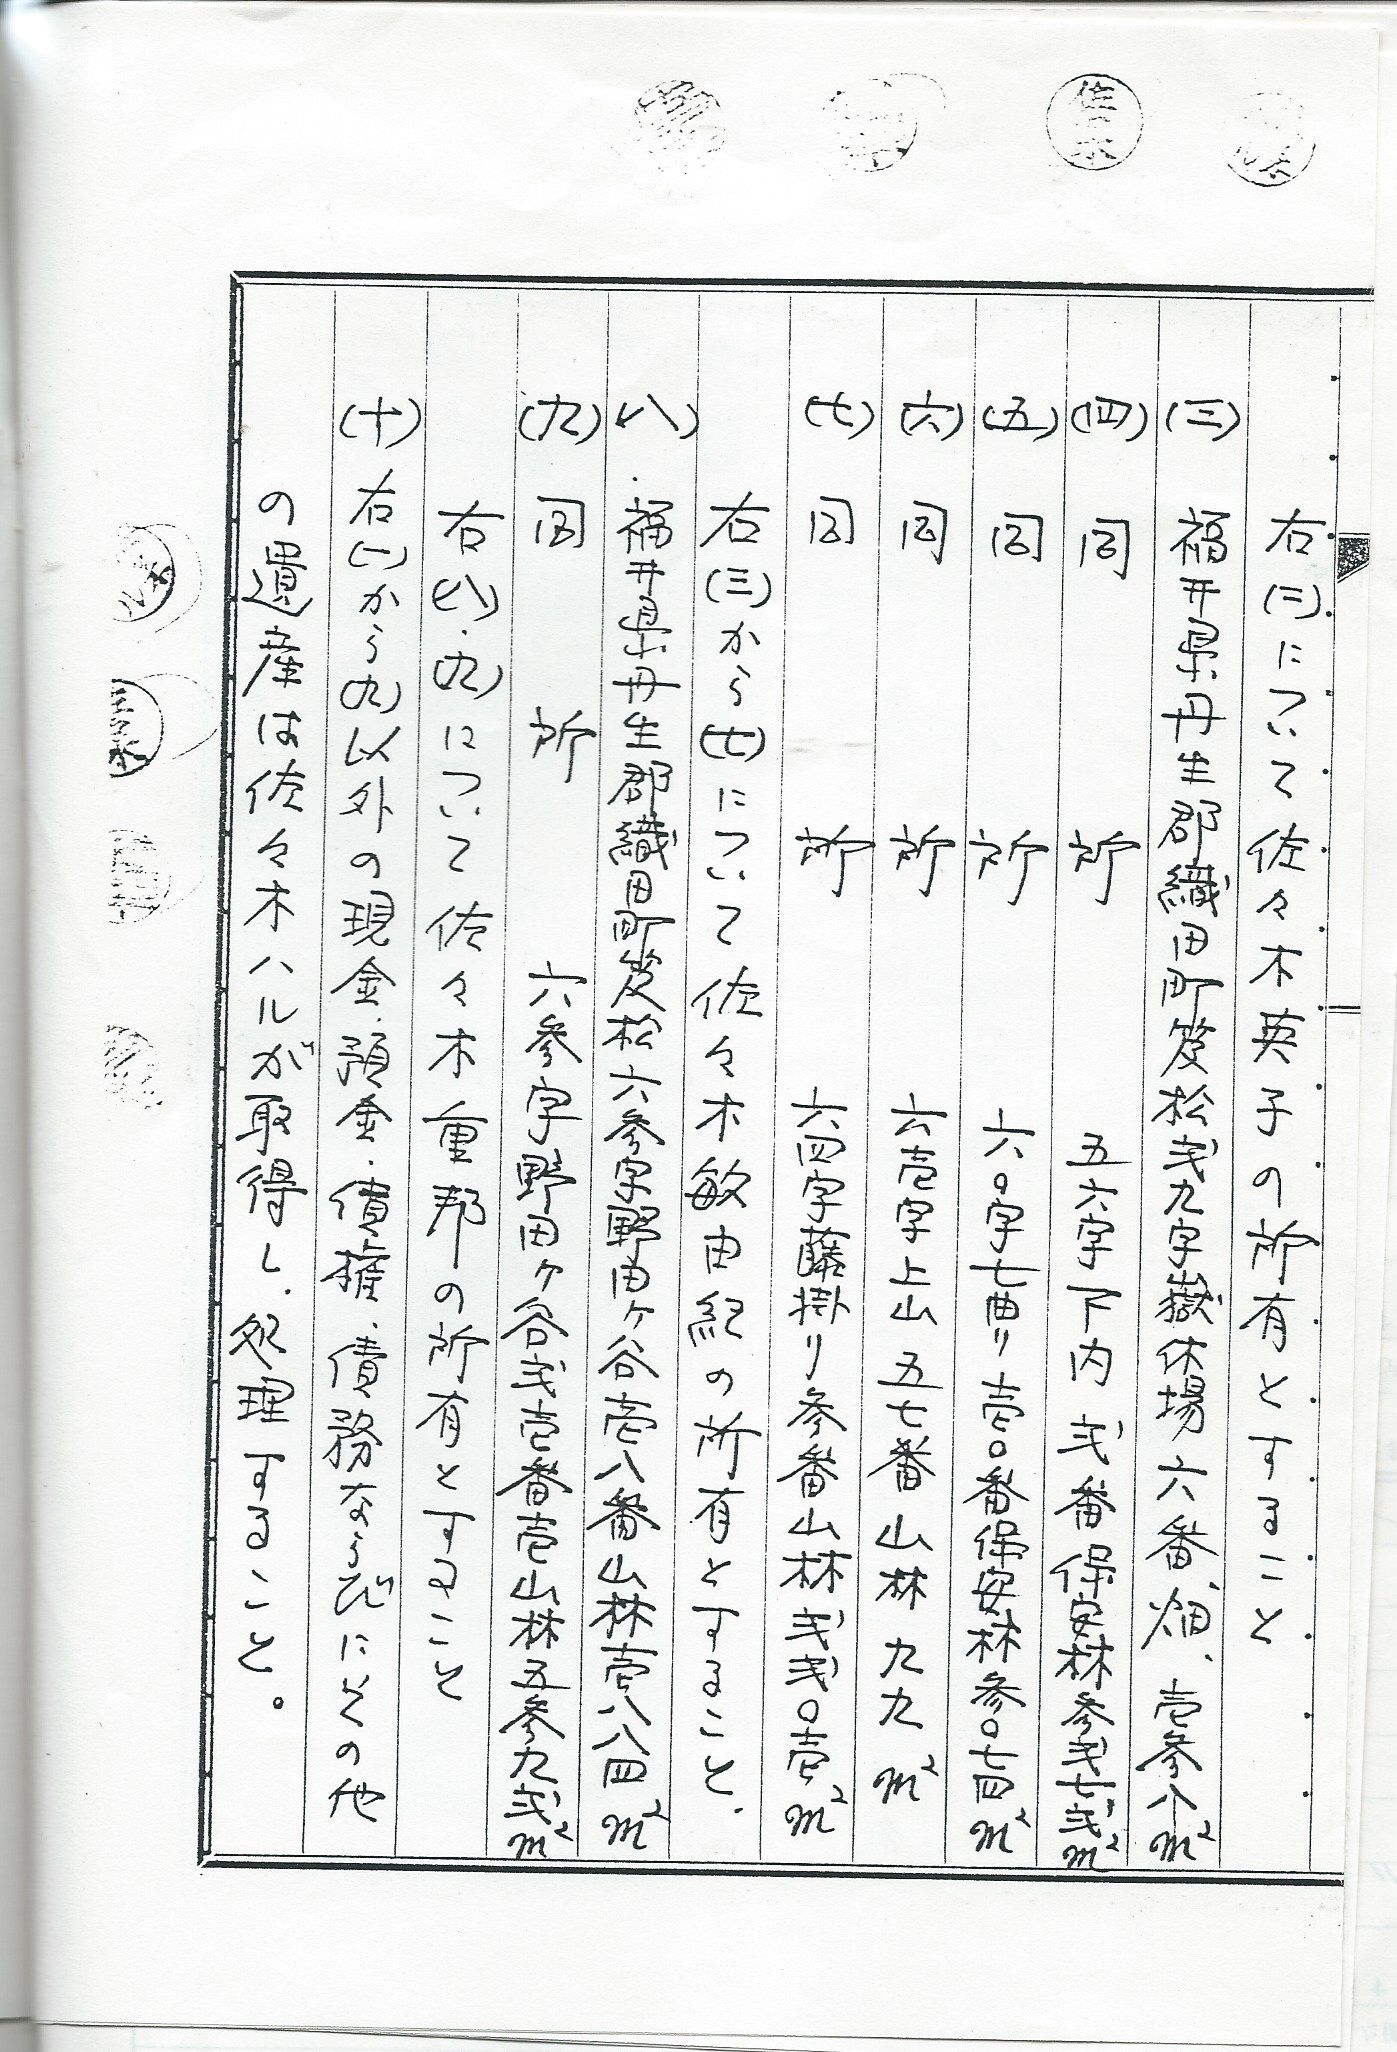 右(二)について佐々木英子の所有とすること
(三) 福井県丹生郡織田町笈松弐九字嶽休場六番、畑、壱参八m²
(四) 同 所 五六字下内弐番保安林参弐七弐m²
(五) 同 所 六〇字七曲リ壱〇番保安林参〇七四m²
(六) 同 所 六壱字上山五七番山林九九m²
(七) 同 所 六四字藤掛リ参番山林弐弐〇壱m²
右(三)から(七)について佐々木敏由紀の所有とすること、
(八) 福井県丹生郡織田町笈松六参字野田ヶ谷壱八番山林壱八八四m²
(九) 同 所 六参字野田ヶ谷弐壱番壱山林五参九弐m²
右(八)・(九)について佐々木重邦の所有とすること
(十) 右(一)から(九)以外の現金・預金・債権・債務ならびにその他
の遺産は佐々木ハルが取得し、処理すること。